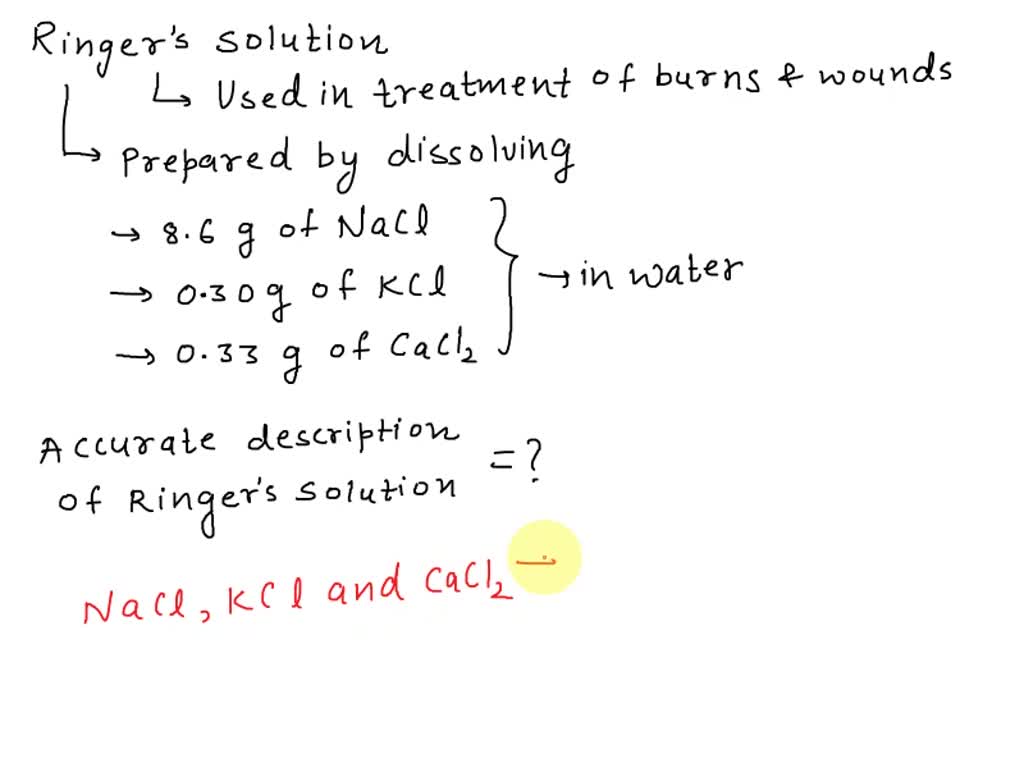 Ringer's solution
↳ Used in treatment of burns & wounds
↳ Prepared by dissolving
→ 8.6 g of NaCl
→ 0.30 g of KCl
→ in water
→ 0.33 g of CaCl₂
Accurate description
= ?
of Ringer's solution
NaCl, KCl and CaCl₂ →